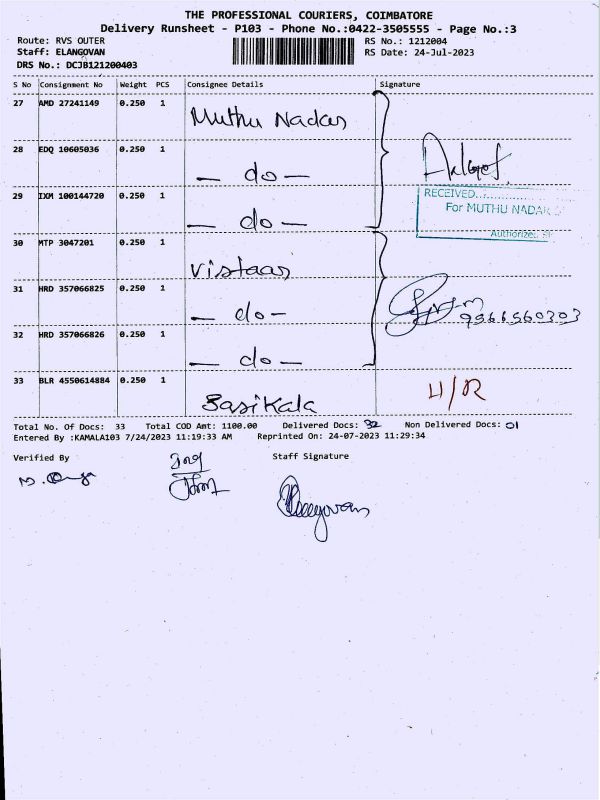 THE PROFESSIONAL COURIERS, COIMBATORE
Delivery Runsheet - P103 - Phone No.:0422-3505555 - Page No.:3
Route: RVS OUTER RS No.: 1212004
Staff: ELANGOVAN RS Date: 24-Jul-2023
DRS No.: DCJB121200403
S No Consignment No Weight PCS Consignee Details Signature
27 AMD 27241149 0.250 1 Muthu Nadar
28 EDQ 10605036 0.250 1 — do —
29 IXM 100144720 0.250 1 — do —
RECEIVED..............
For MUTHU NADAR
Authorized
30 MTP 3047201 0.250 1 Vistaar
31 HRD 357066825 0.250 1 — do —
9566560303
32 HRD 357066826 0.250 1 — do —
33 BLR 4550614884 0.250 1 Sasikala
Total No. Of Docs: 33 Total COD Amt: 1100.00 Delivered Docs: 32 Non Delivered Docs: 01
Entered By :KAMALA103 7/24/2023 11:19:33 AM Reprinted On: 24-07-2023 11:29:34
Verified By Staff Signature